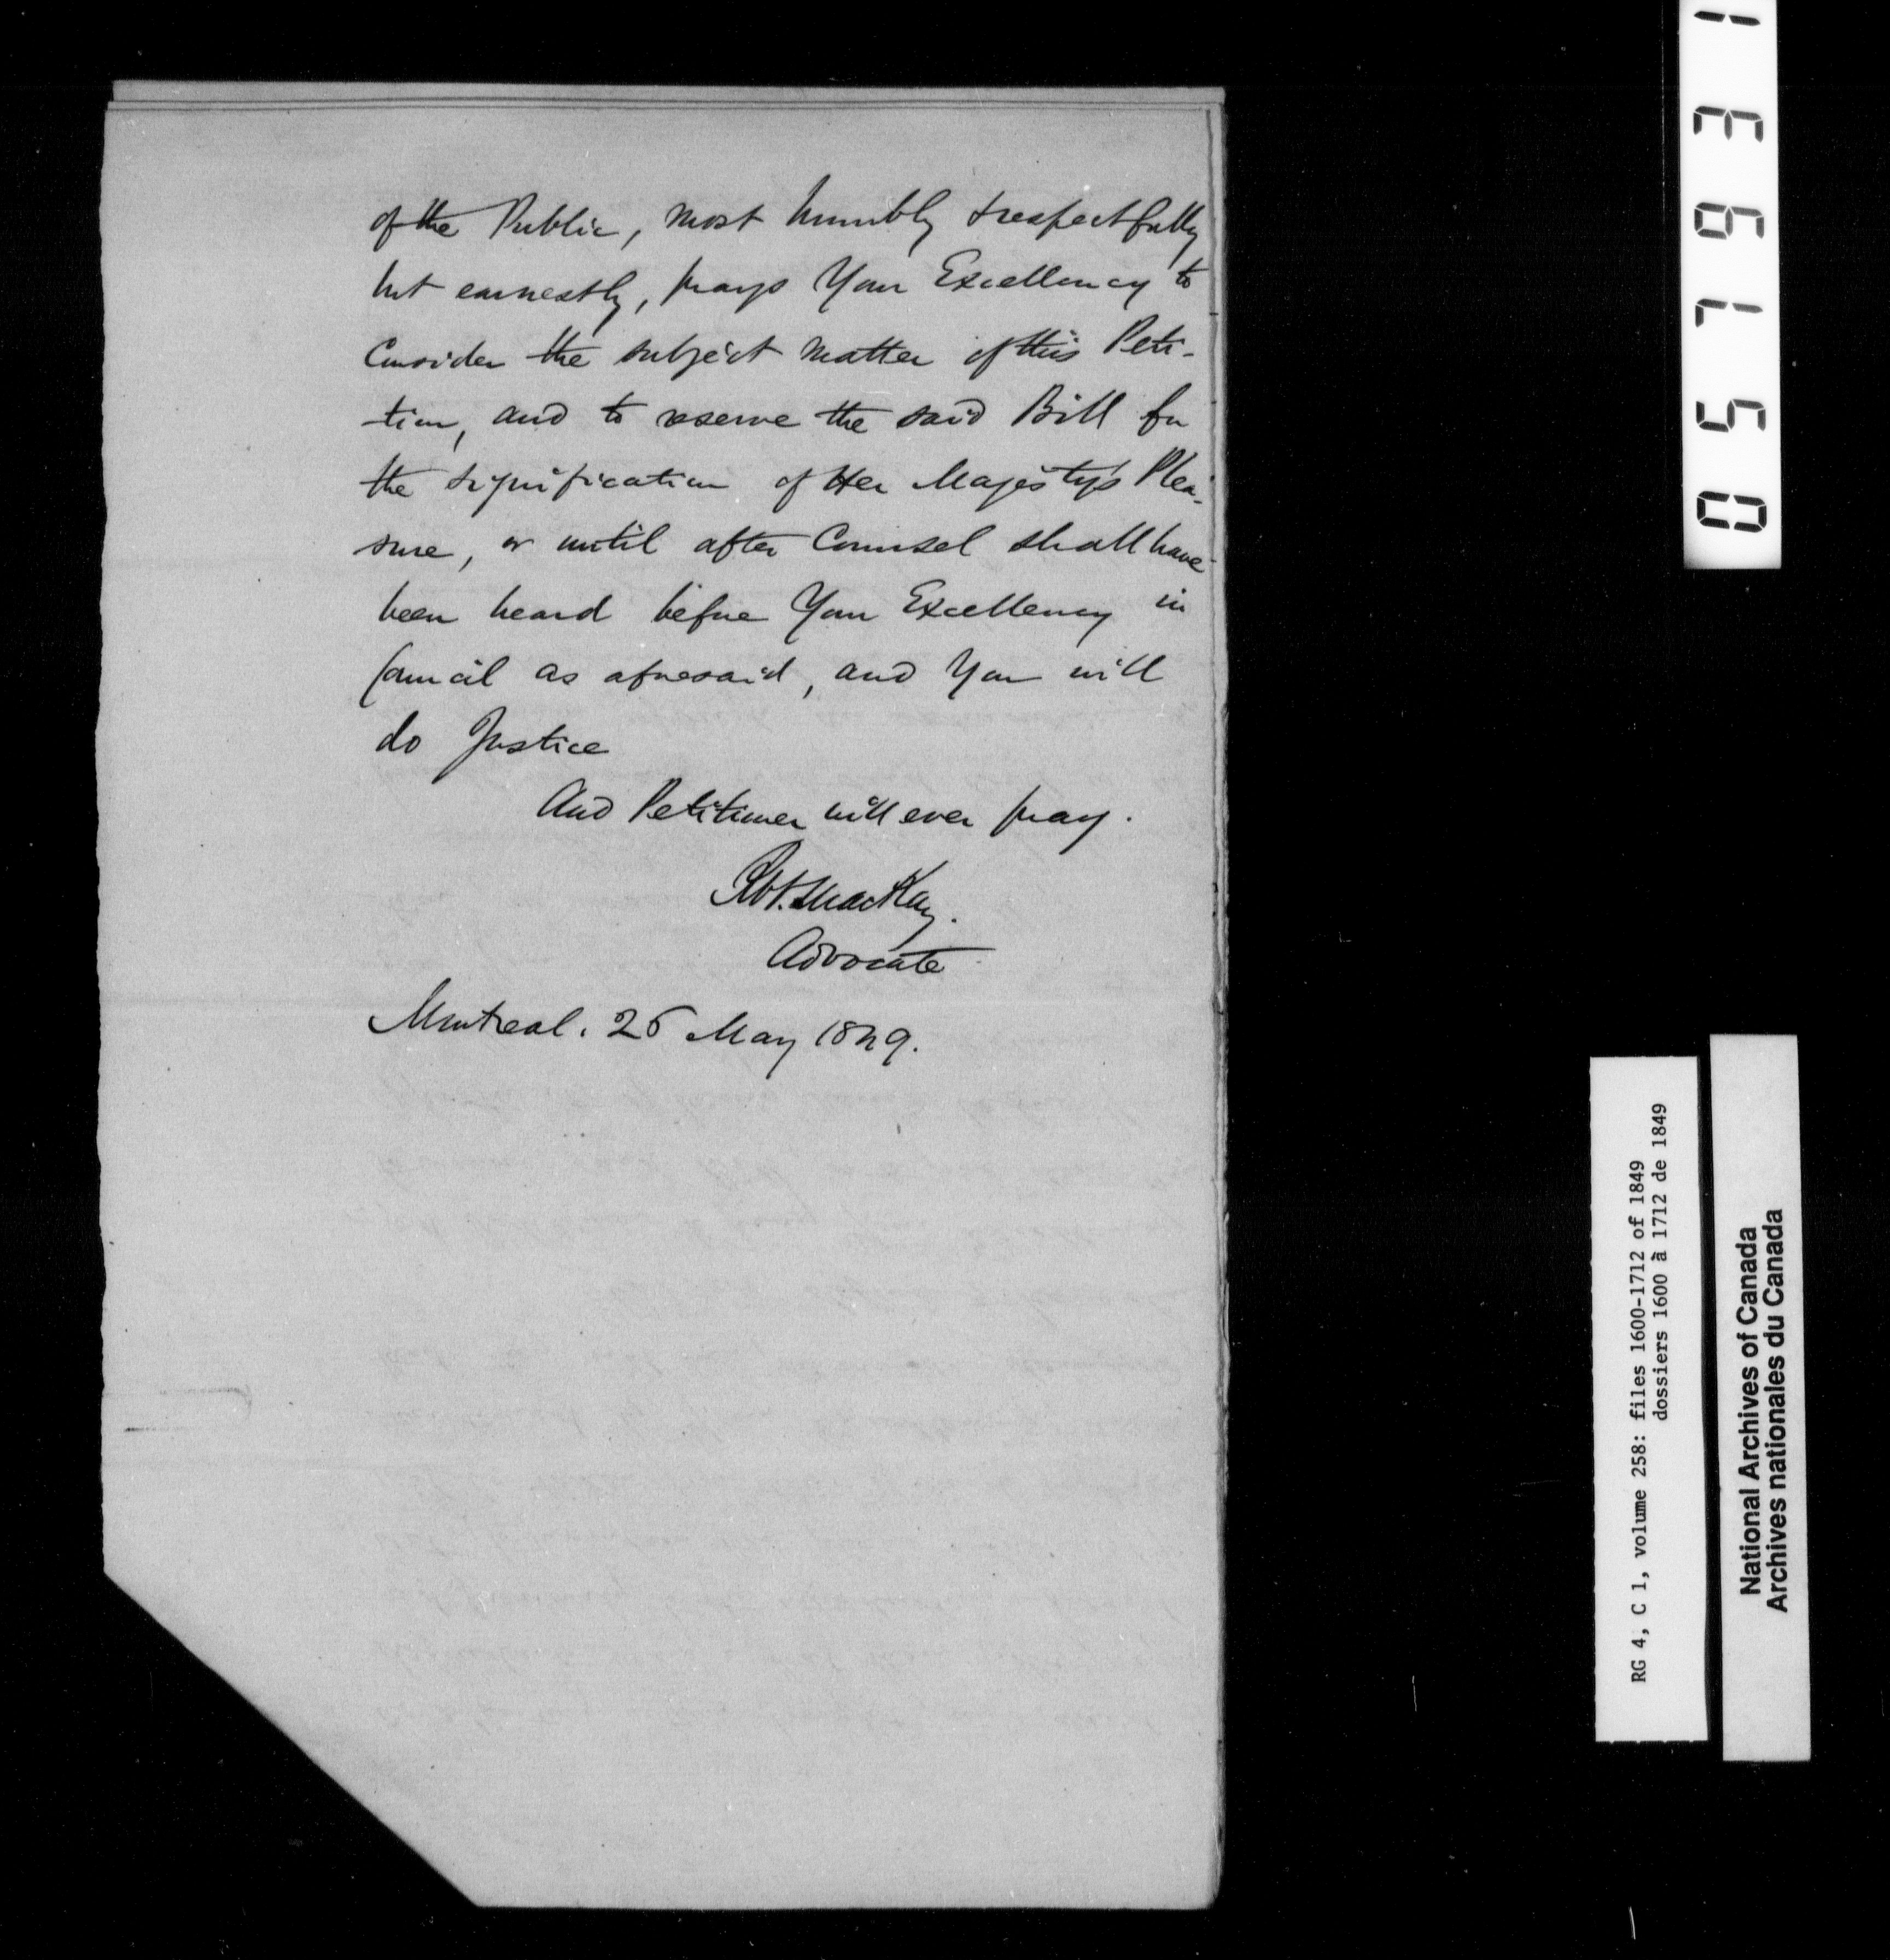 of the Public, most humbly & respectfully
but earnestly, prays Your Excellency to
Consider the subject matter of this Peti-
tion, and to reserve the said Bill for
the signification of Her Majesty's Plea-
sure, or until after Counsel shall have
been heard before Your Excellency in
Council as aforesaid, and You will
do Justice
And Petitioner will ever pray.
Robt. MacKay.
Advocate
Montreal. 26 May 1849.
0 5 7 6 3 1
RG 4, C 1, volume 258: files 1600-1712 of 1849
dossiers 1600 à 1712 de 1849
National Archives of Canada
Archives nationales du Canada